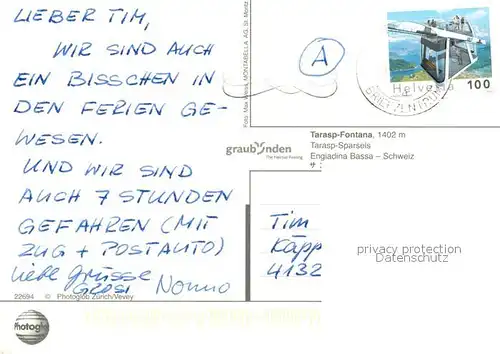 LIEBER TIM,
WIR SIND AUCH
EIN BISSCHEN IN
DEN FERIEN GE-
WESEN.
UND WIR SIND
AUCH 7 STUNDEN
GEFAHREN (MIT
ZUG + POSTAUTO)
Liebe Grüsse
GROSI Nonno
22694 © Photoglob Zürich/Vevey
Photoglob
Foto: Max Weiss, MONTABELLA AG, St. Moritz
A
Helvetia 100
BRIEFZENTRUM
graubünden
Tarasp-Fontana, 1402 m
Tarasp-Sparsels
Engiadina Bassa – Schweiz
Tim
Käpp
4132
privacy protection
Datenschutz